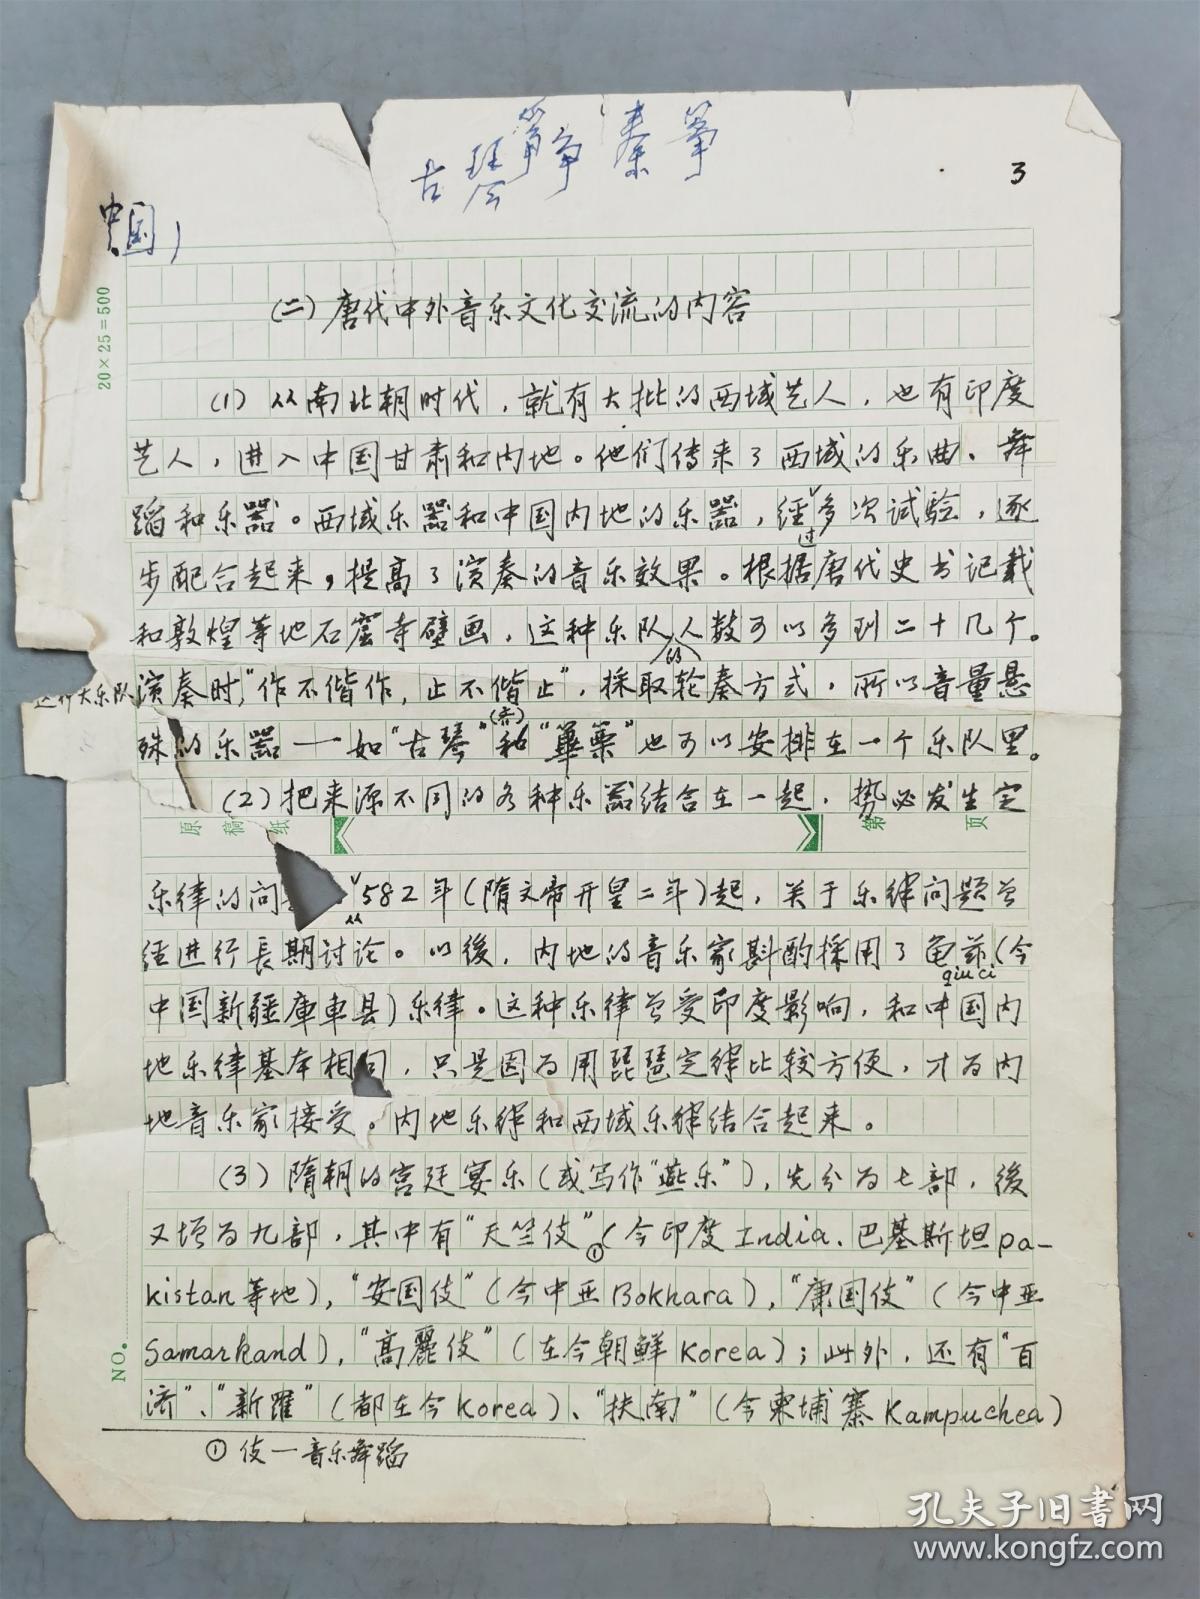 古琴 筝 秦筝
3
中国
20×25=500
(二)唐代中外音乐文化交流的内容
(1)从南北朝时代，就有大批的西域艺人，也有印度
艺人，进入中国甘肃和内地。他们传来了西域的乐曲、舞
蹈和乐器。西域乐器和中国内地的乐器，经过多次试验，逐
步配合起来，提高了演奏的音乐效果。根据唐代史书记载
和敦煌等地石窟寺壁画，这种乐队的人数可以多到二十几个。
这种大乐队演奏时，“作不偕作，止不偕止”，採取轮奏方式，所以音量悬
殊的乐器——如“古琴”(秦)和“篳篥”也可以安排在一个乐队里。
(2)把来源不同的各种乐器结合在一起，势必发生定
原稿纸 第 页
乐律的问 从582年(隋文帝开皇二年)起，关于乐律问题曾
经进行長期讨论。以後，内地的音乐家斟酌採用了龟兹(今
qiuci
中国新疆庫車县)乐律。这种乐律曾受印度影响，和中国内
地乐律基本相同，只是因为用琵琶定律比较方便，才为内
地音乐家接受。内地乐律和西域乐律结合起来。
(3)隋朝的宫廷宴乐(或写作“燕乐”)，先分为七部，後
又增为九部，其中有“天竺伎”①(今印度India、巴基斯坦pa-
kistan等地)，“安国伎”(今中亚Bokhara)，“康国伎”(今中亚
Samarkand)，“高麗伎”(在今朝鮮Korea)；此外，还有“百
济”、“新羅”(都在今Korea)、“扶南”(今柬埔寨Kampuchea)
NO.
①伎—音乐舞蹈
孔夫子旧书网
www.kongfz.com